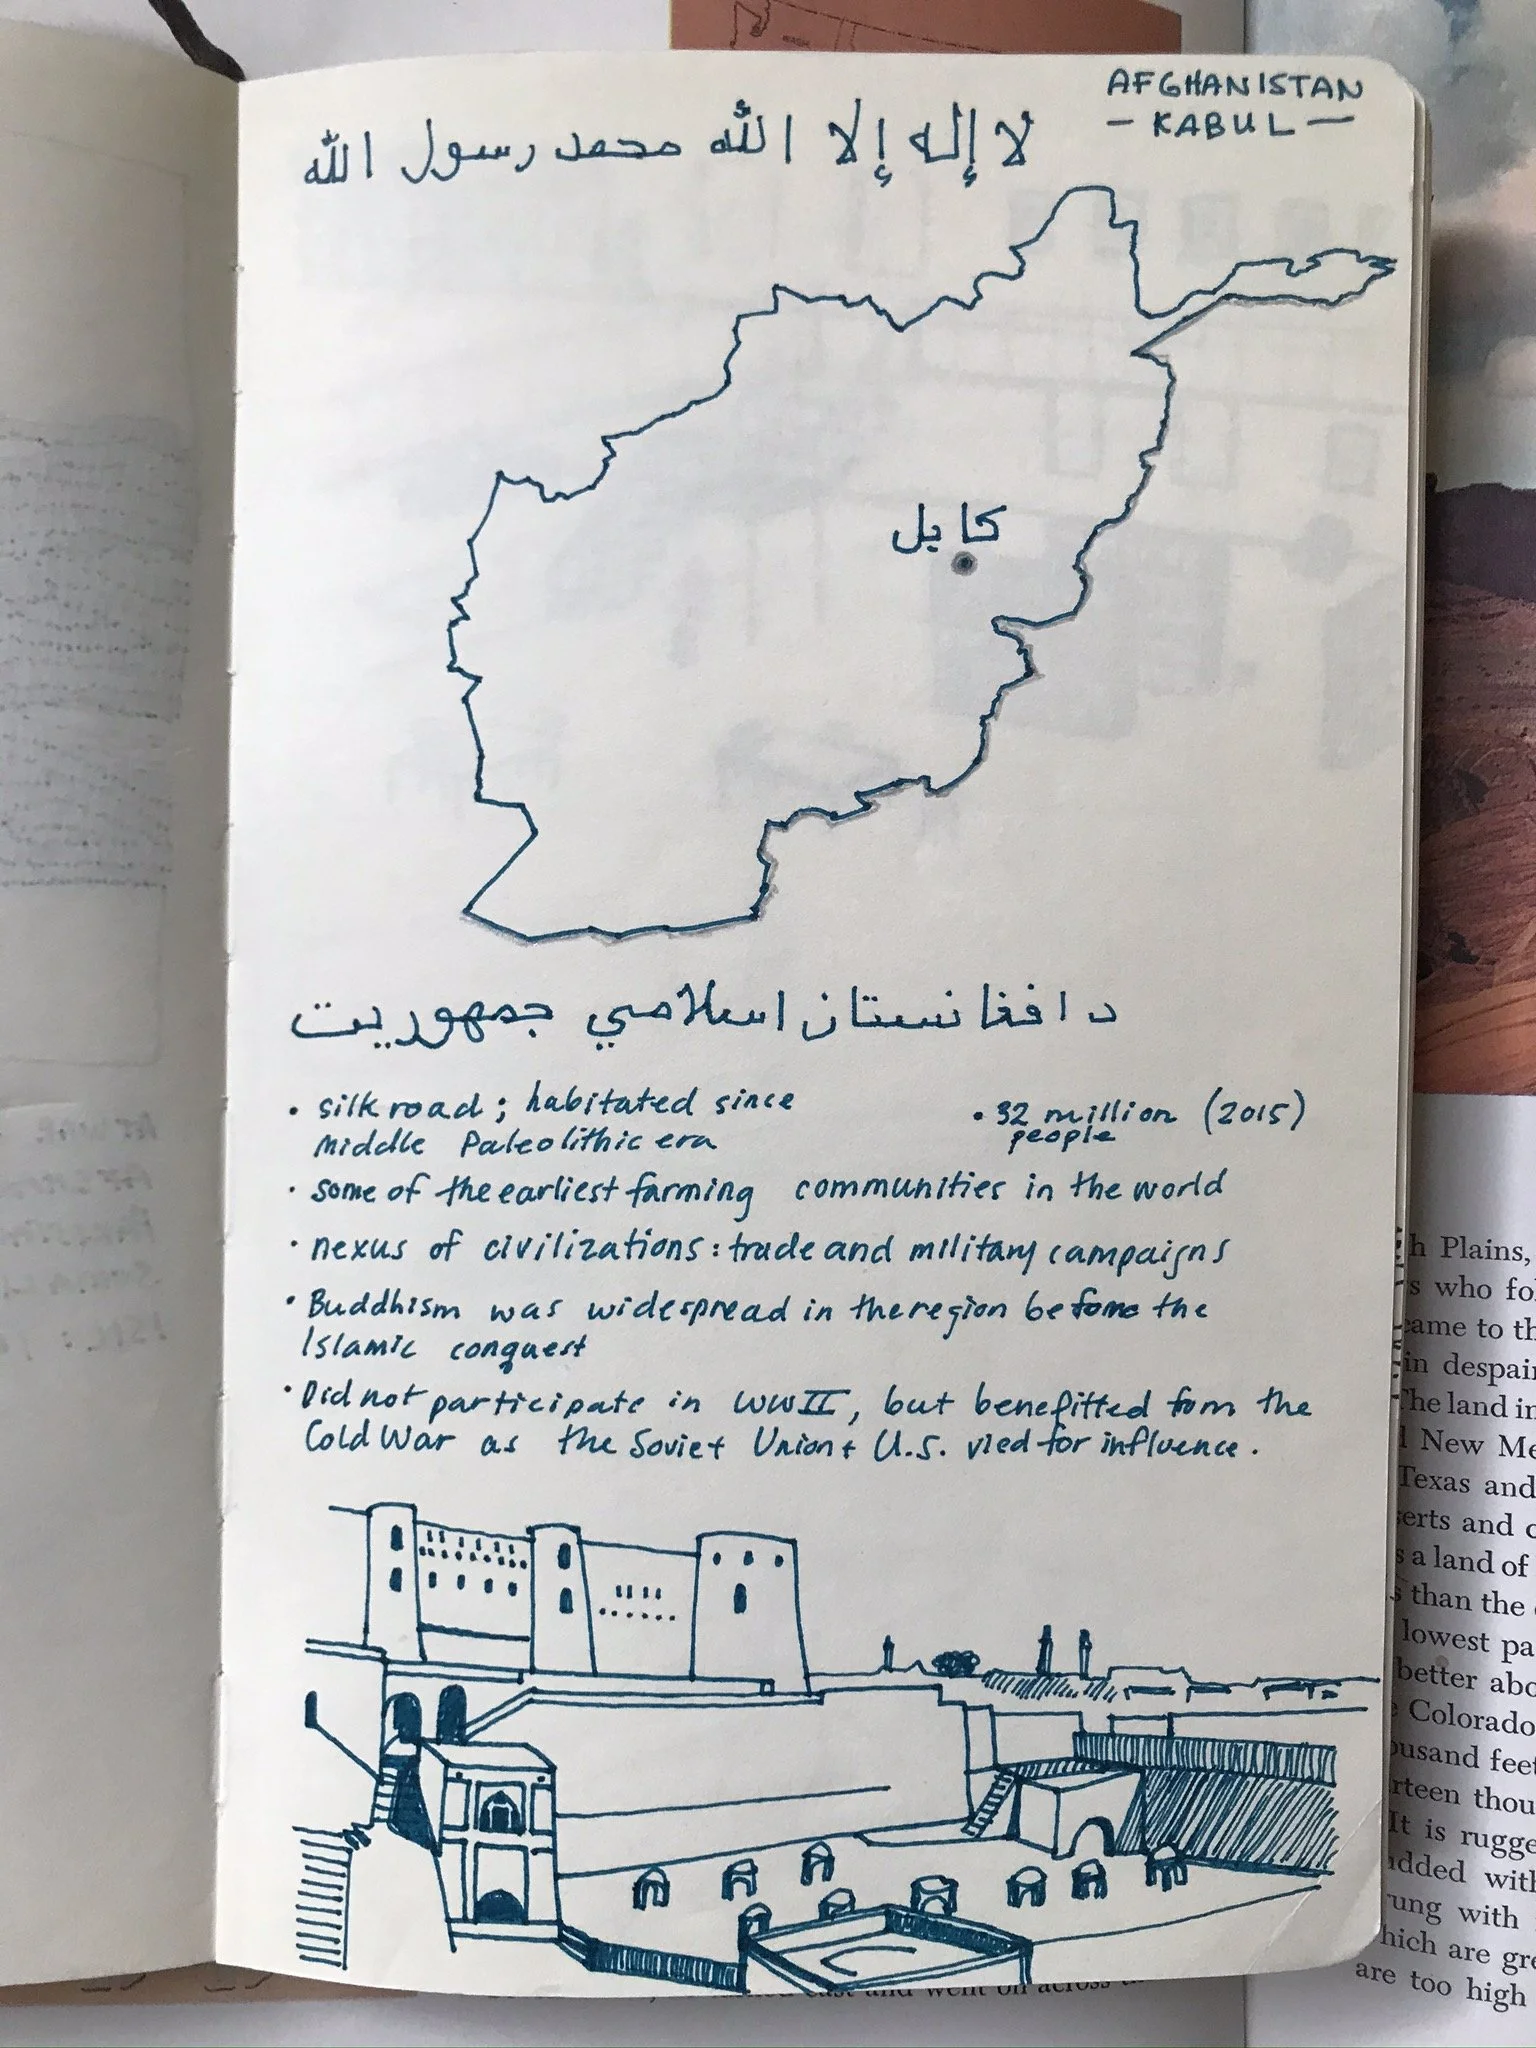 AFGHANISTAN
- KABUL -
لا إله إلا الله محمد رسول الله
كابل
د افغانستان اسلامي جمهوريت
• silk road; habitated since
middle Paleolithic era
• 32 million (2015)
people
• some of the earliest farming communities in the world
• nexus of civilizations: trade and military campaigns
• Buddhism was widespread in the region before the
Islamic conquest
• Did not participate in WWII, but benefitted from the
Cold War as the Soviet Union + U.S. vied for influence.
h Plains,
s who fo
came to th
in despair
The land in
l New Me
Texas and
serts and c
s a land of
s than the
lowest pa
better abo
e Colorado
ousand feet
rteen thou
It is rugge
dded with
rung with
hich are gre
are too high
east and went on across